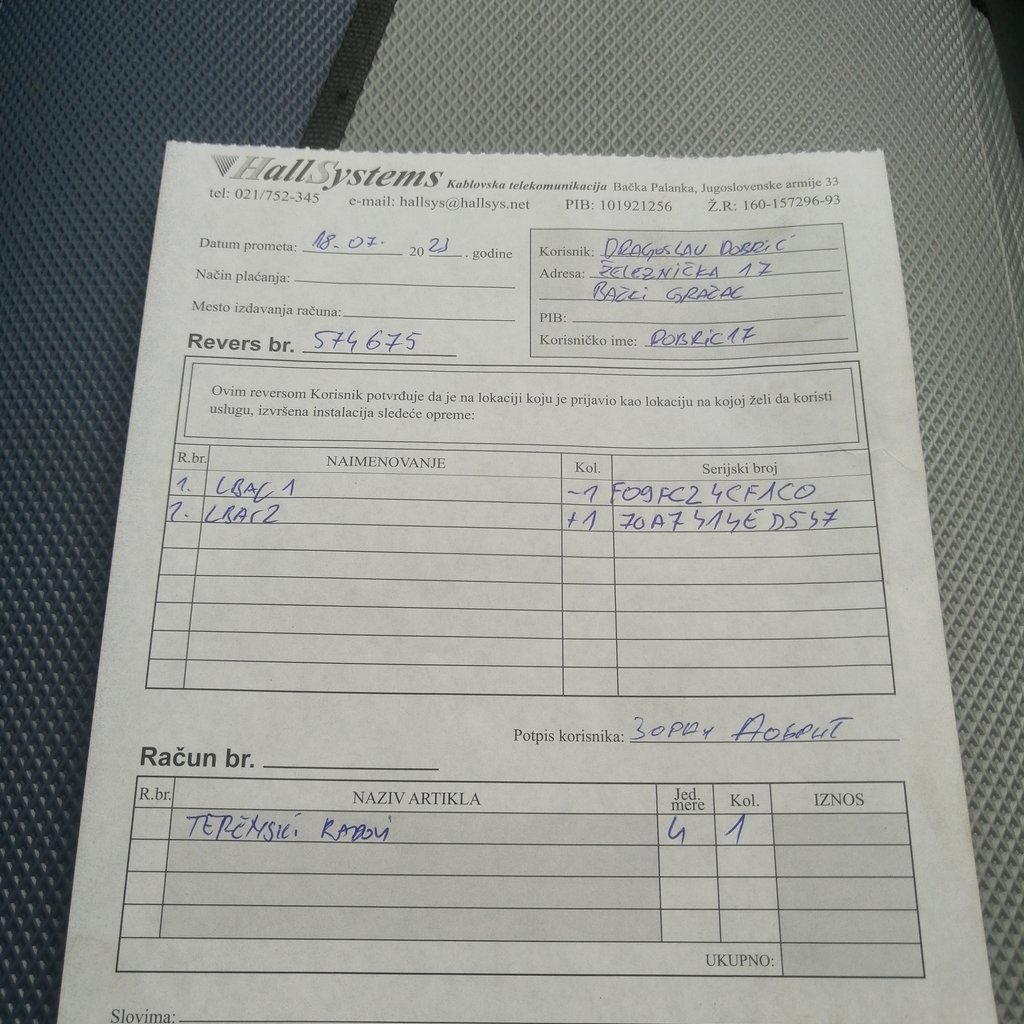 HallSystems Kablovska telekomunikacija Bačka Palanka, Jugoslovenske armije 33
tel: 021/752-345 e-mail: hallsys@hallsys.net PIB: 101921256 Ž.R: 160-157296-93
Datum prometa: 18.07. 2023. godine
Način plaćanja:
Mesto izdavanja računa:
Revers br. 574675
Korisnik: DRAGOSLAV DOBRIĆ
Adresa: ŽELEZNIČKA 17
BAČKI GRAČAC
PIB:
Korisničko ime: DOBRIC17
Ovim reversom Korisnik potvrđuje da je na lokaciji koju je prijavio kao lokaciju na kojoj želi da koristi
uslugu, izvršena instalacija sledeće opreme:
R.br. NAIMENOVANJE Kol. Serijski broj
1. LBAC1 -1 F09FC24CF1C0
2. LBAC2 +1 70A7414ED547
Potpis korisnika: Зоран Добрић
Račun br.
R.br. NAZIV ARTIKLA Jed. mere Kol. IZNOS
TERENSKI RADOVI 4 1
UKUPNO:
Slovima: